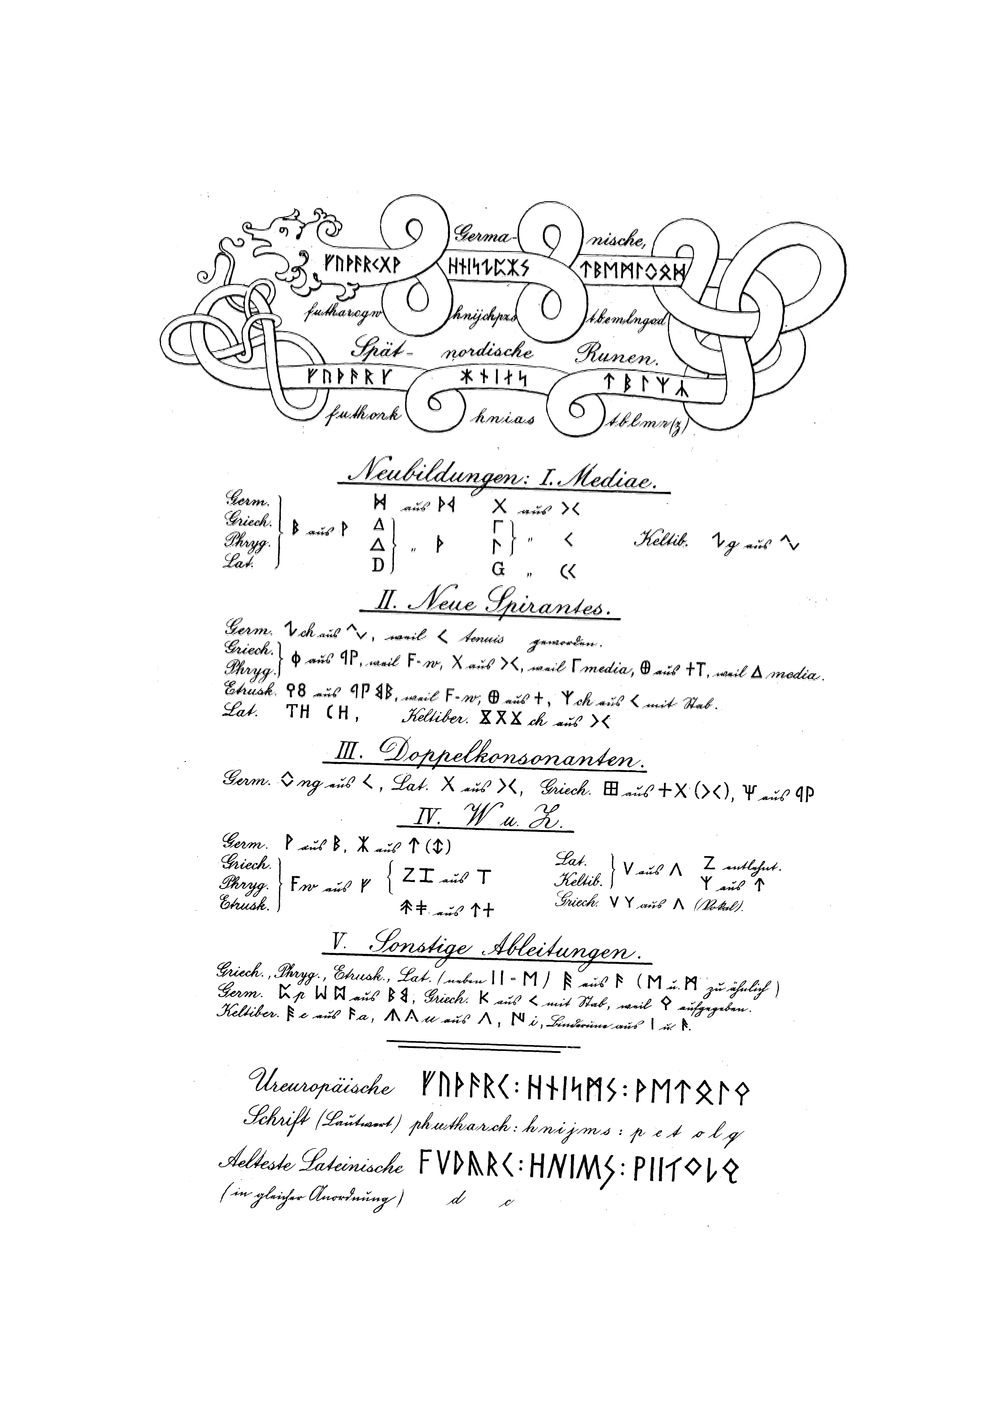 Germa- nische,
ᚠᚢᚦᚨᚱᚲᚷᚹ ᚺᚾᛁᛃᛇᛈᛉᛊ ᛏᛒᛖᛗᛚᛜᛟᛞ
futharcgw hnijchpzs tbemlngod
Spät- nordische Runen.
ᚠᚢᚦᚨᚱᚴ ᚼᚾᛁᛅᛋ ᛏᛒᛚᛘᛦ
futhork hnias tblmr(z)
Neubildungen: I. Mediae.
Germ. ᛞ aus ᚦ X aus ><
Griech. ᛒ aus ᚹ Δ Γ
Phryg. Δ „ ᚦ ᛚ „ < Keltib. g aus
Lat. D G „
II. Neue Spirantes.
Germ. ch aus , weil < tenuis geworden.
Griech. Φ aus qP, weil F=w, X aus ><, weil Γ media, ⊕ aus +T, weil Δ media.
Phryg.
Etrusk. 8 aus qP B, weil F=w, ⊕ aus +, ᛉ ch aus < mit Stab.
Lat. TH CH, Keltiber. ch aus ><
III. Doppelkonsonanten.
Germ. ◇ ng aus <, Lat. X aus ><, Griech. ⊞ aus +X (><), Ψ aus qP
IV. W u. Z.
Germ. ᚹ aus ᛒ, ᛯ aus ↑ (↕)
Griech. Lat. V aus Λ Z entlehnt.
Phryg. Fw aus ᚠ ZI aus T Keltib. ᛉ aus ↑
Etrusk. ⤉ǂ aus ↑+ Griech. VY aus Λ (Vokal).
V. Sonstige Ableitungen.
Griech., Phryg., Etrusk., Lat. (neben II = M) aus ᚨ (M u. ᛗ zu ähnlich)
Germ. ᛈ p aus B, Griech. K aus < mit Stab, weil aufgegeben.
Keltiber. e aus a, u aus Λ, i, Binderune aus I u.
Ureuropäische ᚠᚢᚦᚨᚱᚲ:ᚺᚾᛁᛋᛗᛊ:ᚹᛖᛏᛟᛚ⚲
Schrift (Lautwert) phutharch: hnijms: p e t o l q
Aelteste Lateinische FVDARC:HNIMS:PIITOLQ
(in gleicher Anordnung) d c